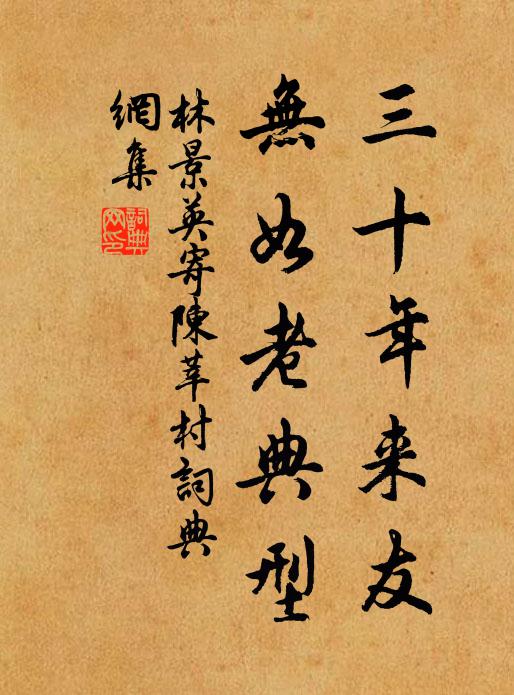 三十年来友
無如老典型
林景英寄陳莘村詞典
網集
詞典網印